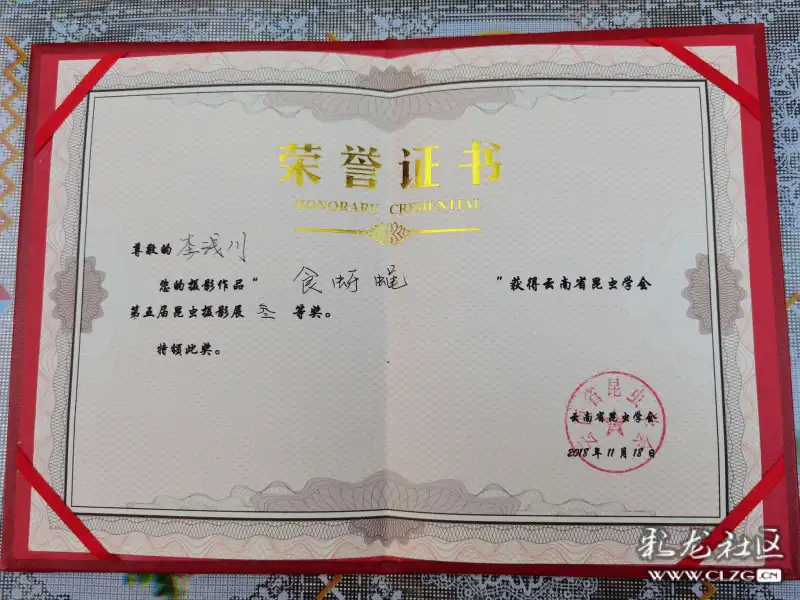 荣誉证书
HONORARY CREDENTIAL
尊敬的 李浅川
您的摄影作品“ 食蚜蝇 ”获得云南省昆虫学会
第五届昆虫摄影展 叁 等奖。
特颁此奖。
云南省昆虫学会
云南省昆虫学会
2018年11月18日
彩龙社区
WWW.CLZG.CN